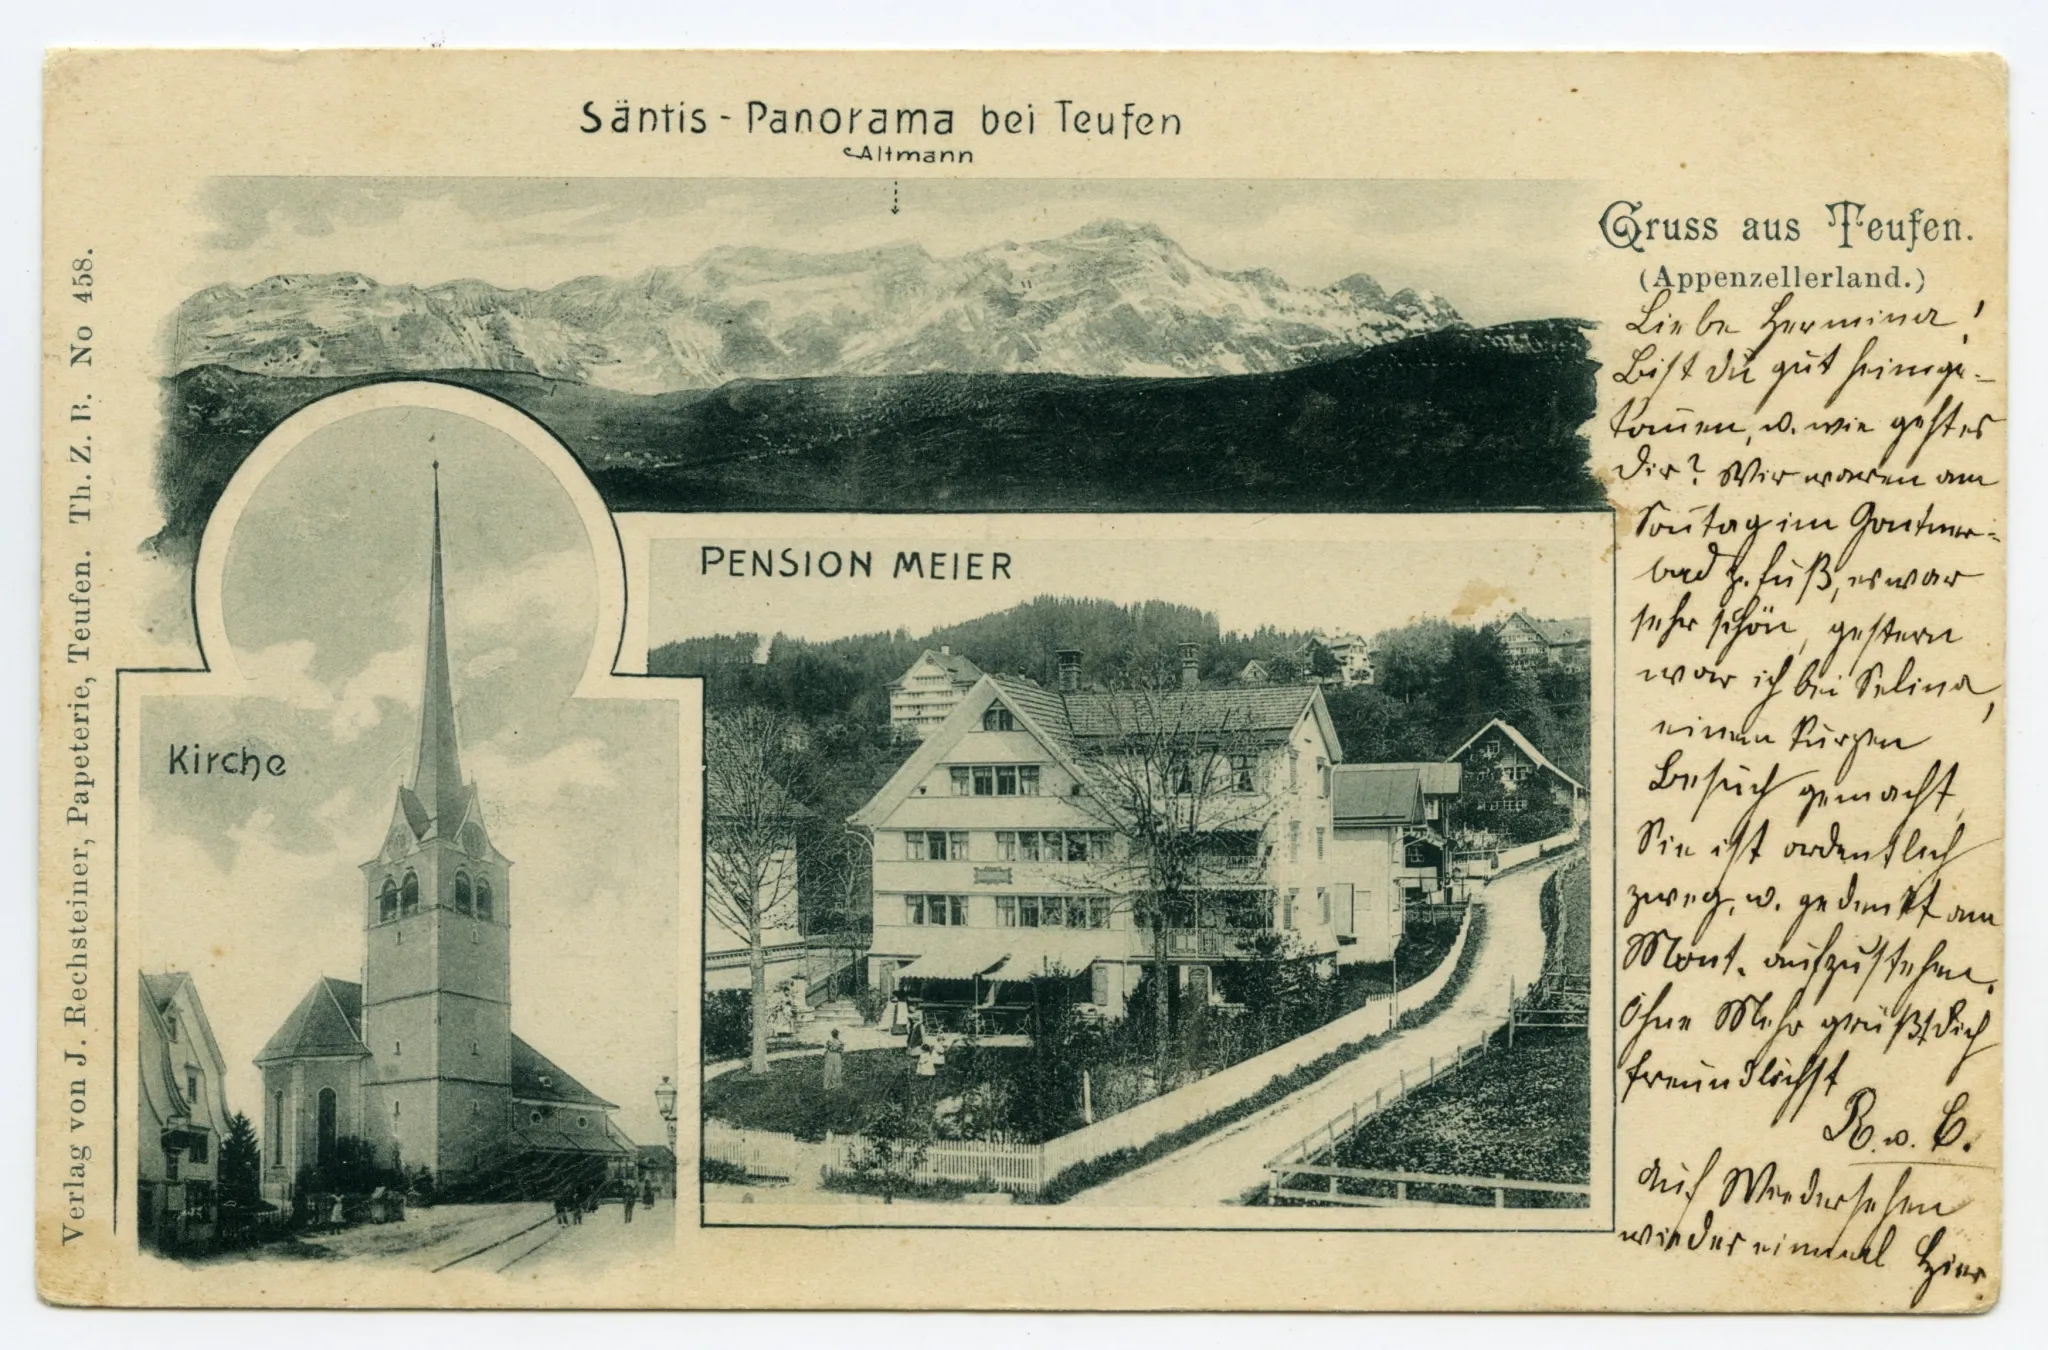 Säntis - Panorama bei Teufen
Altmann
Gruss aus Teufen.
(Appenzellerland.)
PENSION MEIER
Kirche
Verlag von J. Rechsteiner, Papeterie, Teufen. Th. Z. B. No 458.
Liebe Hermina!
Bist Du gut heimge-
kom̅en, u. wie geht es
Dir? Wir waren am
Son̅tag im
bad z. Fuß, es war
sehr schön, gestern
war ich bei Selina,
einen kurzen
Besuch gemacht,
Sie ist ordentlich
zweg, u. gedenkt am
Mont. aufzustehen.
Ohne Mehr grüßt Dich
freundlichst
R. u. C.
Auf Wiedersehen
wieder einmal hier.